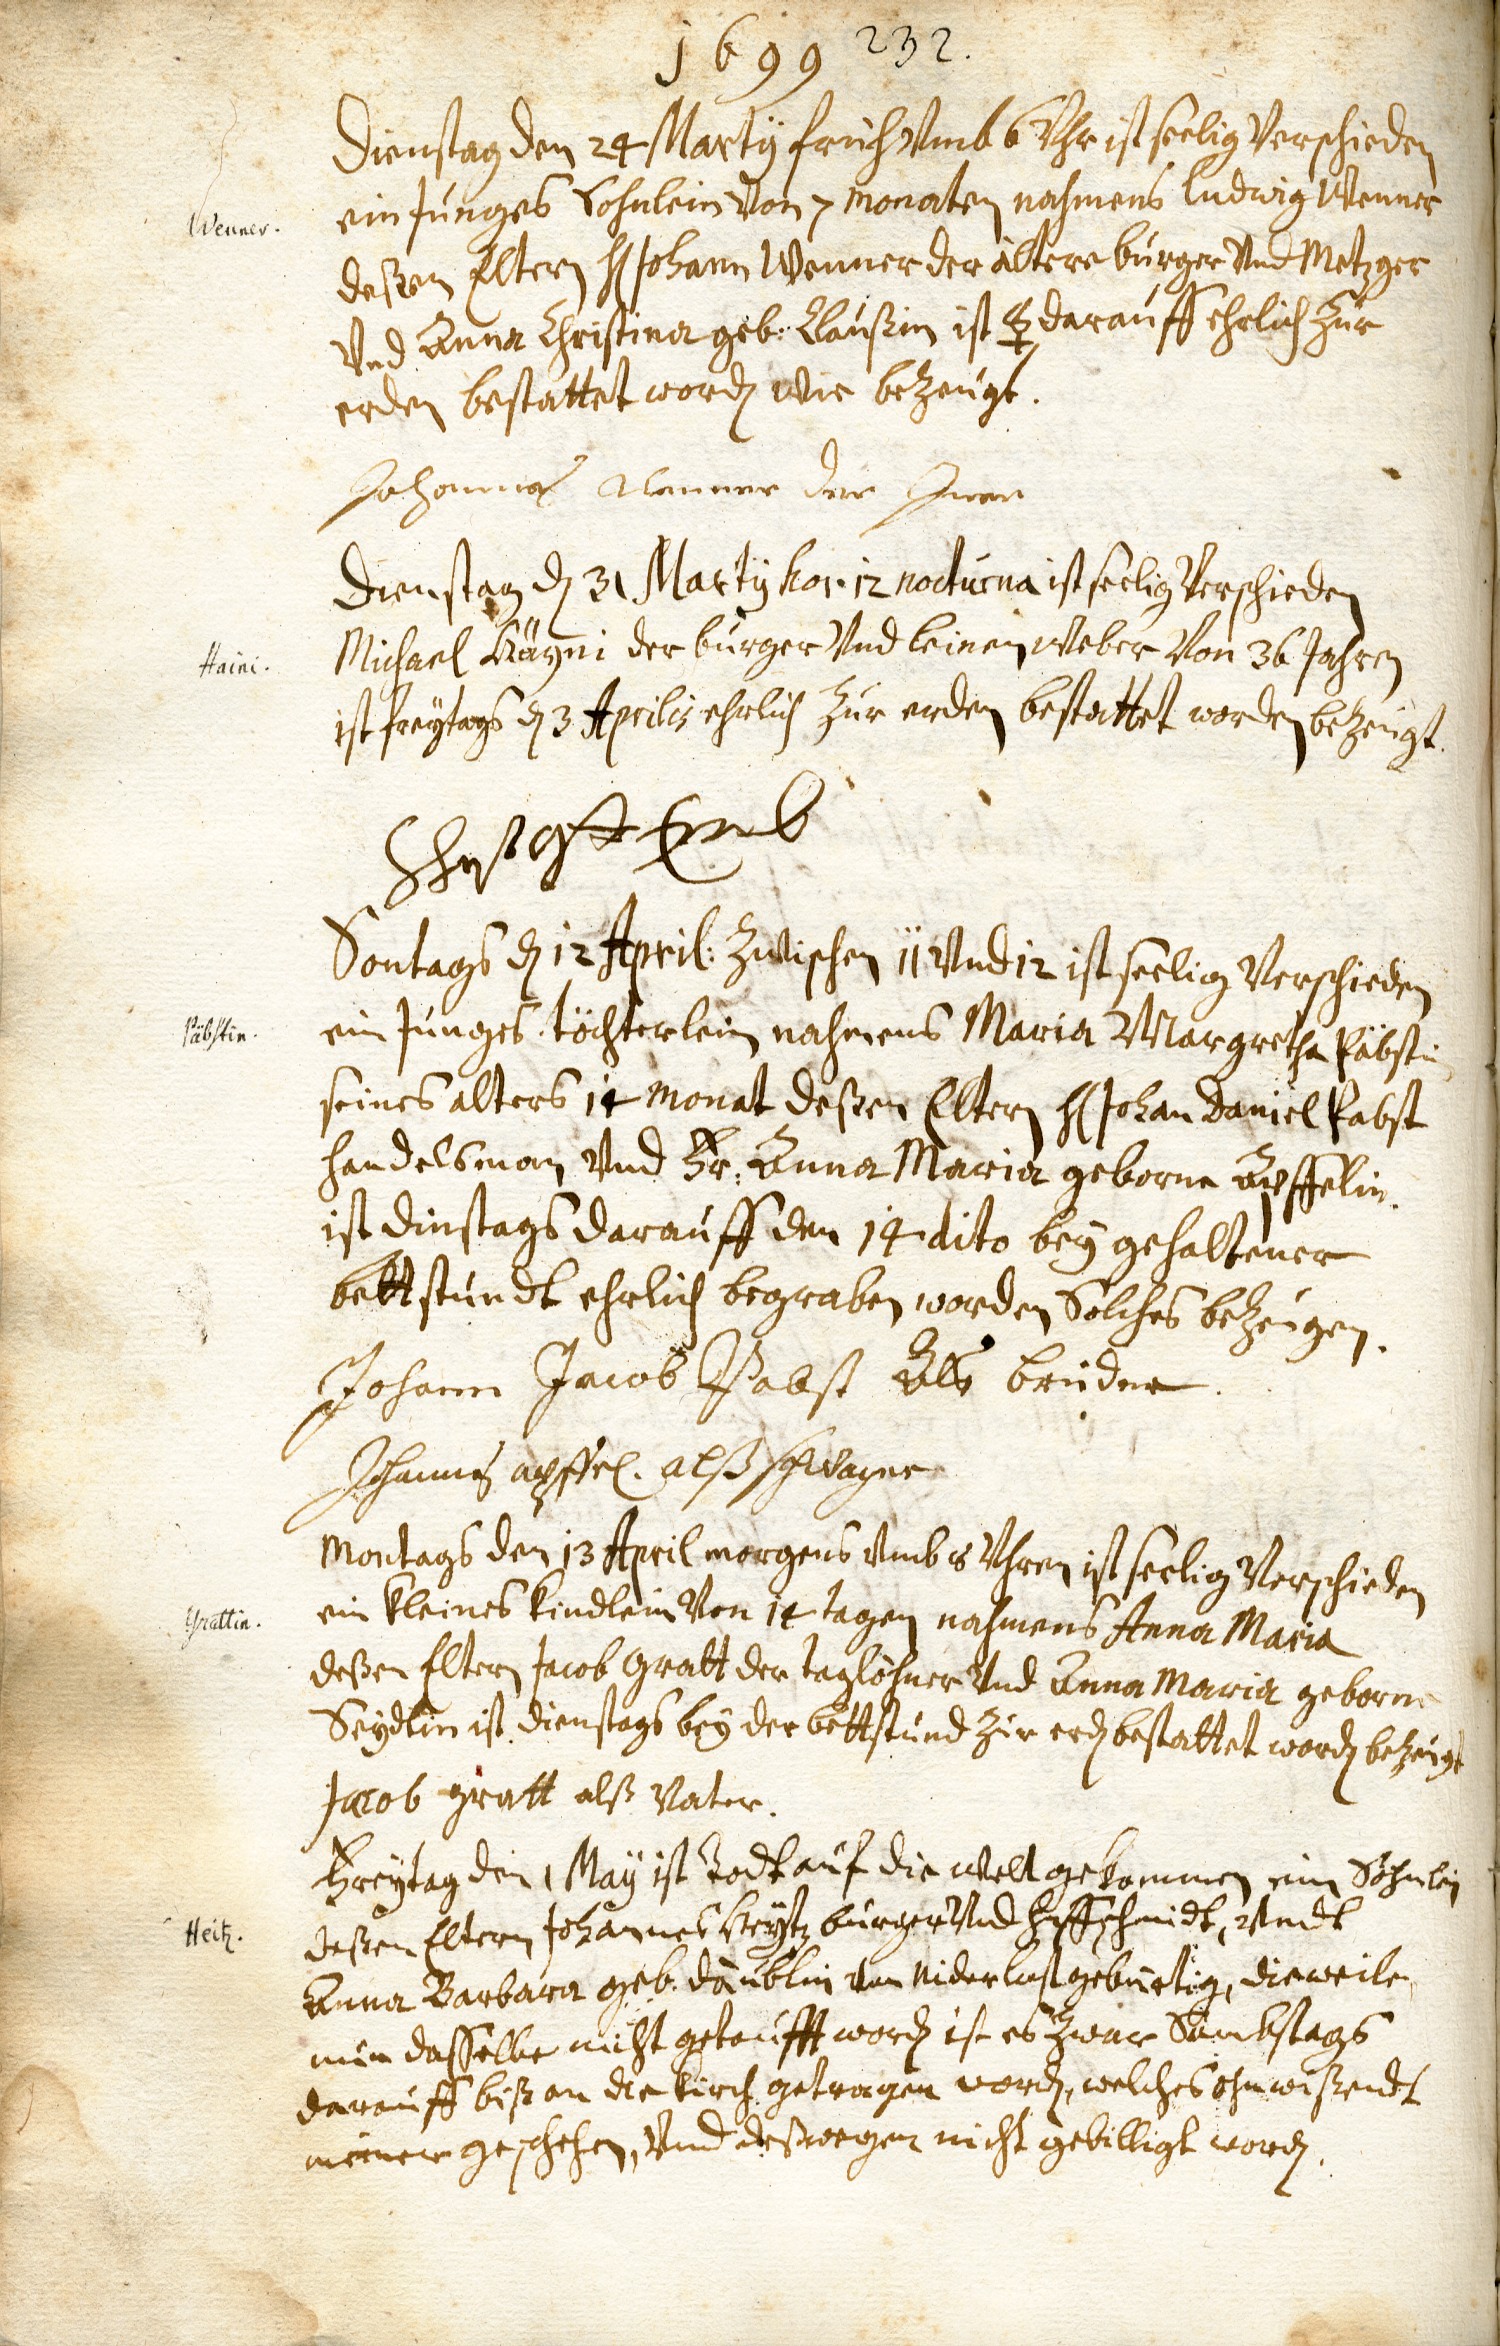 1699 232.
Dienstag den 24 Martÿ früh Vmb 6 Vhr ist seelig Verschieden
ein Junges Sohnlein Von 7 monaten nahmens Ludwig Wenner
Wenner.
deßen Eltern H Johann Wenner der ältere burger Vnd Metzger
Vnd Anna Christina geb. Claußin ist darauff ehrlich Zur
erden bestattet word wie beZeugt.
Johannes Wenner der
Dienstag d 31 Martÿ hor. 12 nocturna ist seelig Verschieden
Michael Häÿni der burger Vnd leinenweber Von 36 Jahren
Haini.
ist freÿtags d 3 Aprilis ehrlich Zur erden bestattet worden beZeugt.
Sontags d 12 April: Zwischen 11 Vnd 12 ist seelig Verschieden
ein Junges töchterlein nahmens Maria Margretha Päbstin
Päbstin.
seines alters 14 monat deßen Eltern H Johan Daniel Pabst
handelsman Vnd Fr: Anna Maria geborne Apffelin.
ist dinstags darauff den 14 dito beÿ gehaltener
bettstundt ehrlich begraben worden Solches beZeugen.
Johann Jacob Pabst Als bruder.
Johannes apffel. alß schwager
Montags den 13 April morgens Vmb 8 Vhren ist seelig Verschieden
ein kleines kindlein Von 14 tagen nahmens Anna Maria
Grattin.
deßen Eltern Jacob Gratt der taglöhner Vnd Anna Maria geborne
Seÿdlin ist dienstags beÿ der bettstund Zur erd bestattet word beZeugt
Jacob gratt alß Vater.
Freÿtag den 1 Maÿ ist Todt auf die welt gekommen ein Söhnlein
deßen Eltern Johannes Heÿtz burger Vnd Huffschmidt, Vndt
Heitz.
Anna Barbara geb. däublin von gebürtig, dieweilen
nun dasselbe nicht getaufft word ist es Zwar Sambstags
darauff biß an die kirch getragen word, welches ohnwißendt
meiner geschehen, Vnd deßwegen nicht gebilligt word.